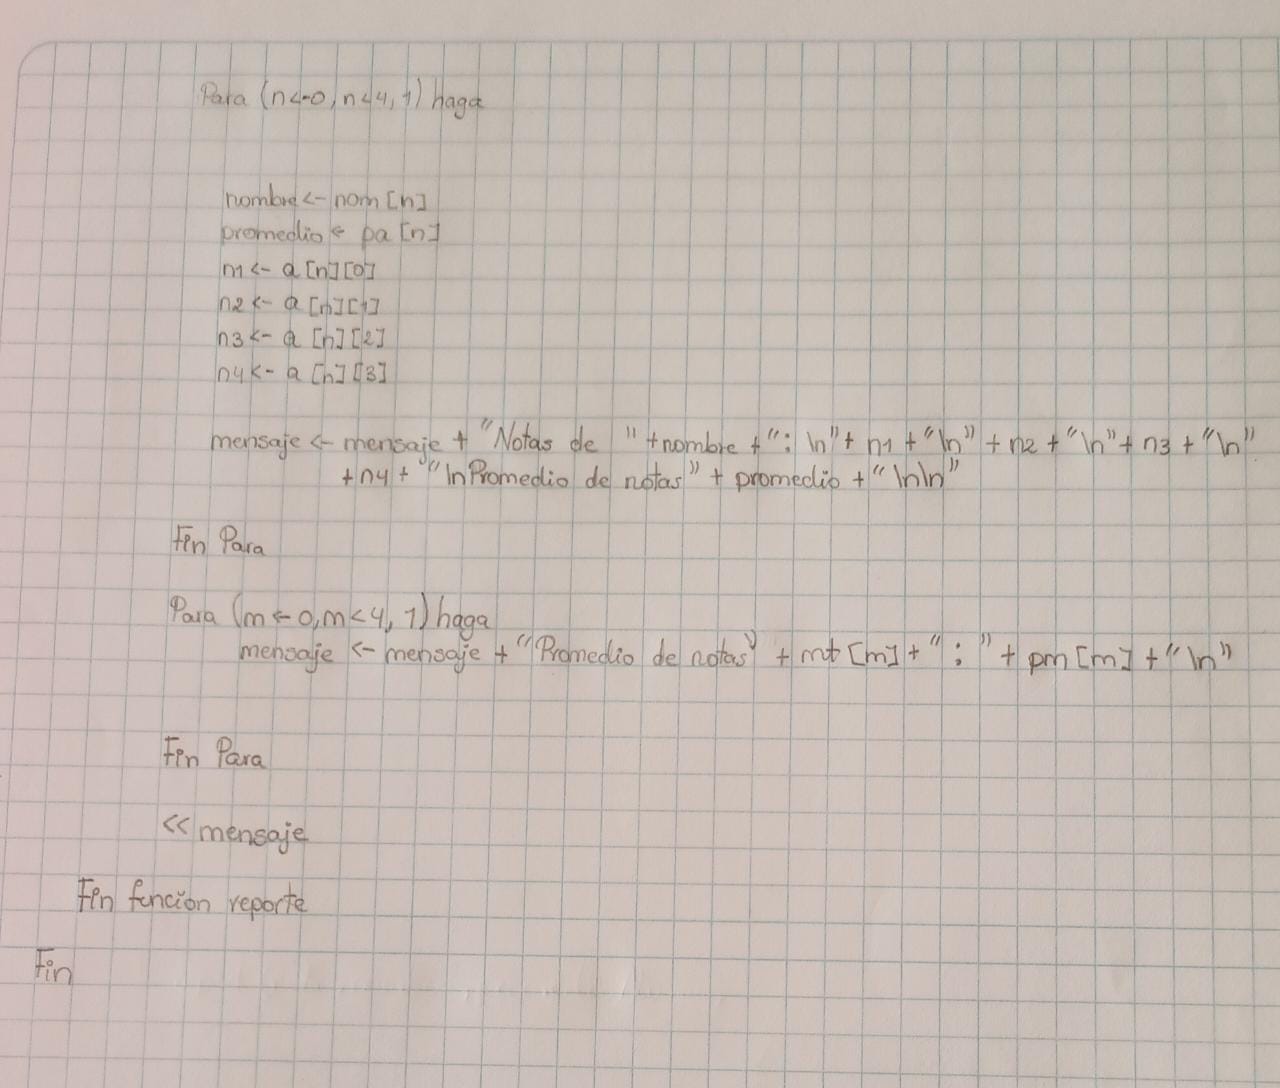 Para (n<-0, n<4, 1) haga
nombre <- nom [n]
promedio <- pa [n]
n1 <- a [n][0]
n2 <- a [n][1]
n3 <- a [n][2]
n4 <- a [n][3]
mensaje <- mensaje + "Notas de " +nombre + ": \n" + n1 + "\n" + n2 + "\n" + n3 + "\n"
+n4 + "\nPromedio de notas" + promedio + "\n\n"
Fin Para
Para (m <- 0, m < 4, 1) haga
mensaje <- mensaje + "Promedio de notas" + mt [m] + " : " + pm [m] + "\n"
Fin Para
<< mensaje
Fin función reporte
Fin